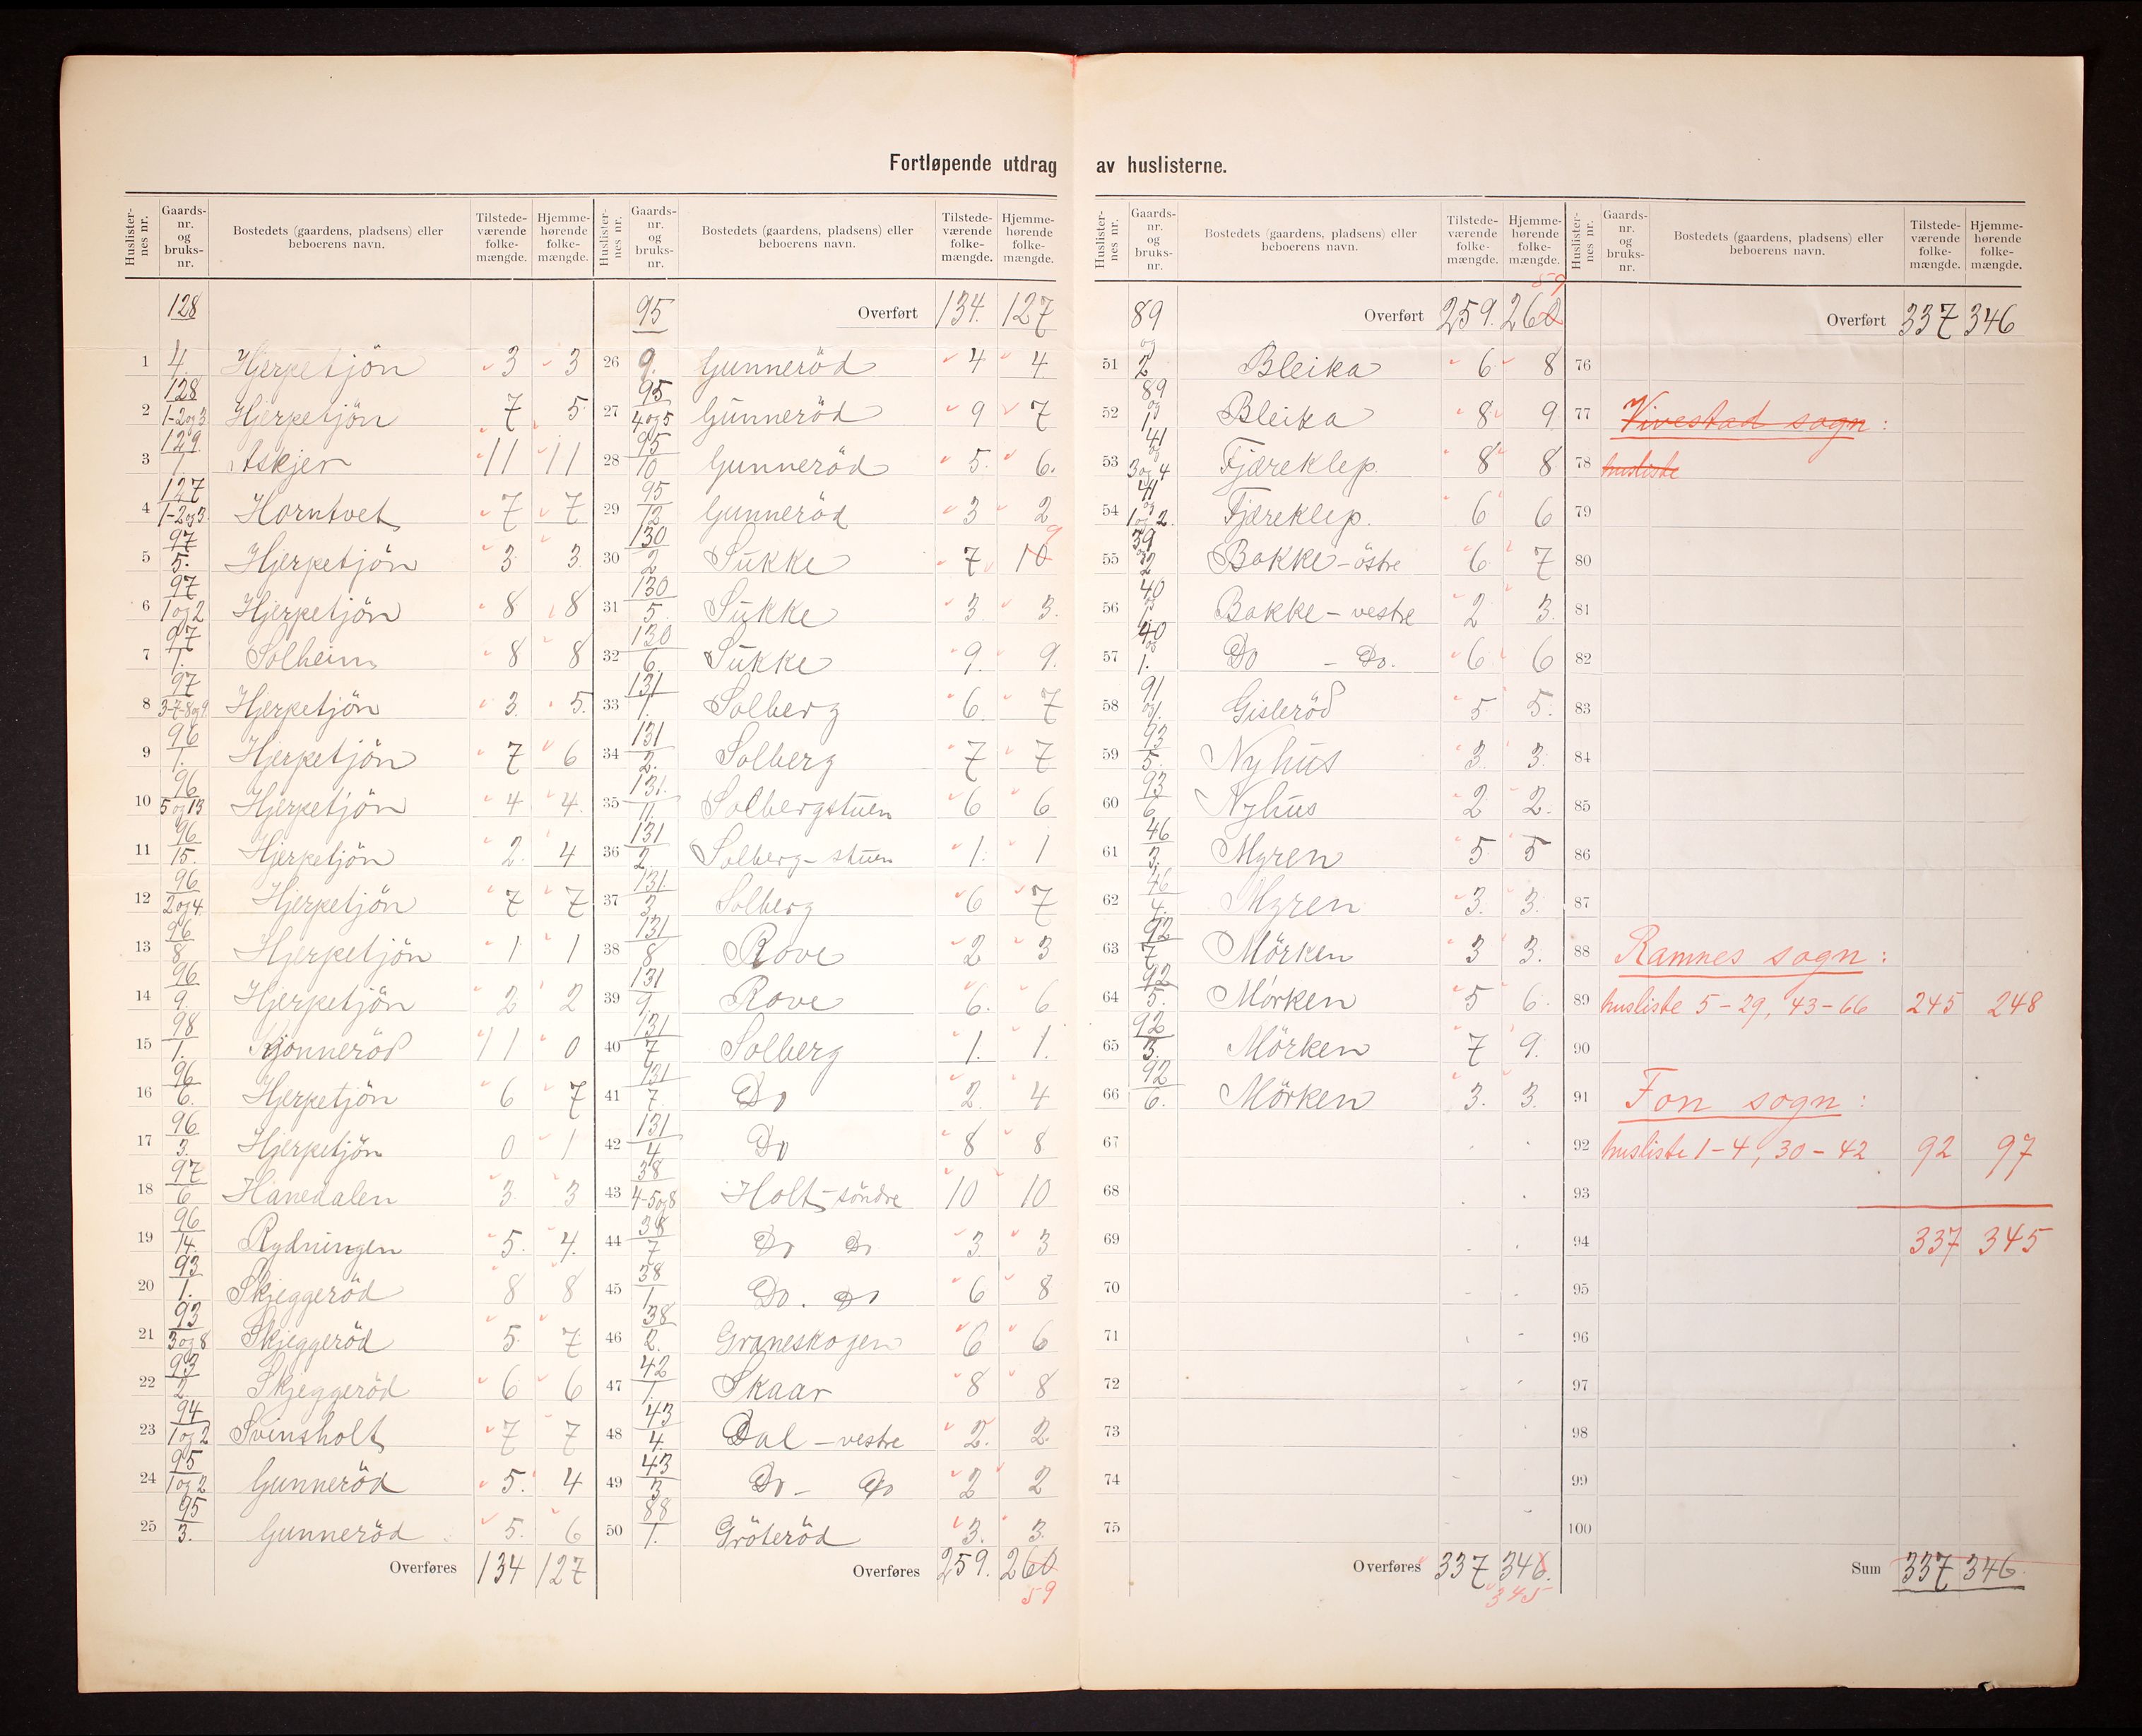 Fortløpende utdrag av huslisterne.
Huslisternes nr. Gaards-nr. og bruks-nr. Bostedets (gaardens, pladsens) eller beboerens navn. Tilstede-værende folke-mængde. Hjemme-hørende folke-mængde.
1 128/4. Hjerpetjön 3 3
2 128/1-2og3 Hjerpetjön 7 5
3 129/1. Askjer 11 11
4 127/1-2og3 Horntvet 7 7
5 97/5. Hjerpetjön 3 3
6 97/1og2 Hjerpetjön 8 8
7 97/1. Solheim 8 8
8 97/3-7-8og9. Hjerpetjön 3. 5.
9 96/1. Hjerpetjön 7 6
10 96/5og13 Hjerpetjön 4 4.
11 96/15. Hjerpetjön 2. 4
12 96/2og4. Hjerpetjön 7 7
13 96/8 Hjerpetjön 1 1
14 96/9. Hjerpetjön 2 2
15 98/1. Kjonneröd 11 0
16 96/6. Hjerpetjön 6 7
17 96/3. Hjerpetjön 0 1
18 97/6 Hanedalen 3 3
19 96/14. Rydningen 5. 4.
20 93/1. Skjeggeröd 8 8
21 93/3og8 Skjeggeröd 5. 7.
22 93/2. Skjeggeröd 6 6
23 94/1og2 Svinsholt 7 7
24 95/1og2 Gunneröd 5. 4
25 95/3. Gunneröd 5. 6
Overføres 134 127
Huslisternes nr. Gaards-nr. og bruks-nr. Bostedets (gaardens, pladsens) eller beboerens navn. Tilstede-værende folke-mængde. Hjemme-hørende folke-mængde.
Overført 134. 127
26 95/9. Gunneröd 4 4.
27 95/4og5 Gunneröd 9 7
28 95/10 Gunneröd 5. 6.
29 95/12 Gunneröd 3 2
30 130/2 Sukke 7 10 9
31 130/5 Sukke 3. 3.
32 130/6. Sukke 9. 9.
33 131/1. Solberg 6. 7
34 131/2. Solberg 7 7
35 131./11. Solbergstuen 6 6
36 131/2. Solberg-stuen 1. 1
37 131/3 Solberg 6 7
38 131/8 Rove 2 3
39 131/9. Rove 6. 6
40 131/7 Solberg 1. 1.
41 131/7. Do 2. 4
42 131/4 Do 8 8
43 38/4-5og8 Holt-söndre 10 10
44 38/7 Do Do 3. 3
45 38/1 Do. Do 6 8
46 38/2. Graneskogen 6 6
47 42/1. Skaar 8 8
48 43/4. Dal - vestre 2. 2.
49 43/3 Do - Do 2 2
50 88/1. Gröteröd 3. 3.
Overføres 259. 260
59
Huslisternes nr. Gaards-nr. og bruks-nr. Bostedets (gaardens, pladsens) eller beboerens navn. Tilstede-værende folke-mængde. Hjemme-hørende folke-mængde.
59
Overført 259. 260
51 89 og 2 Bleika 6 8
52 89 og 1 Bleika 8 9
53 41 og 3og4 Fjæreklep. 8 8
54 41 og 1og2. Fjæreklep. 6 6
55 39 og 2 Bakke-östre 6 7
56 40 og 1. Bakke - vestre 2 3.
57 40 og 1. Do - Do. 6 6
58 91 og 1. Gisleröd 5 5.
59 93/5. Nyhus 3. 3.
60 93/6 Nyhus 2 2.
61 46/3. Myren 5 5
62 46/4. Myren 3. 3.
63 92/7 Mörken 3 3.
64 92/5. Mörken 5 6.
65 92/3. Mörken 7 9.
66 92/6. Mörken 3. 3.
67
68
69
70
71
72
73
74
75
Overføres 337 346.
345
Huslisternes nr. Gaards-nr. og bruks-nr. Bostedets (gaardens, pladsens) eller beboerens navn. Tilstede-værende folke-mængde. Hjemme-hørende folke-mængde.
Overført 337 346
76
77 Vivestad sogn :
78 husliste
79
80
81
82
83
84
85
86
87
88 Ramnes sogn :
89 husliste 5-29, 43-66 245 248
90
91 Fon sogn :
92 husliste 1-4, 30-42 92 97
93
94 337 345
95
96
97
98
99
100
Sum 337 346.